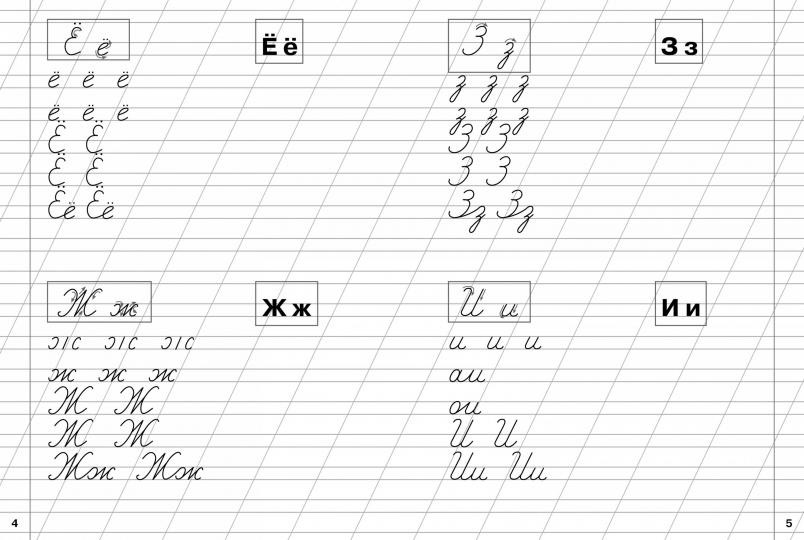 Ё ё Ё ё
ё ё ё
ё ё ё
Ё Ё
Ё Ё
Ёё Ёё
Ж ж Ж ж
ж ж ж
Ж Ж
Ж Ж
Жж Жж
4
З з З з
з з з
з з з
З З
З З
Зз Зз
И и И и
и и и
аи
ои
И И
Ии Ии
5